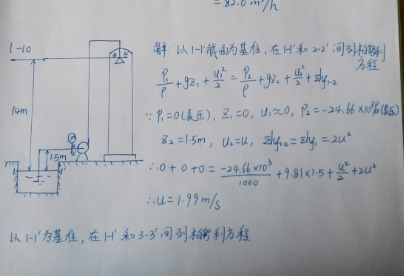 = 82.0 m³/h
1-10
14m
1.5m
解: 以1-1'截面为基准, 在1-1'和2-2'间列柏努利
方程
P₁/ρ + gz₁ + u₁²/2 = P₂/ρ + gz₂ + u₂²/2 + Σhf₁₋₂
∵ P₁=0(表压), z₁=0, u₁≈0, P₂=-24.66×10³Pa(表压)
z₂=1.5m, u₂=u, Σhf₁₋₂=Σhf₁=2u²
∴ 0+0+0 = -24.66×10³/1000 + 9.81×1.5 + u²/2 + 2u²
∴ u=1.99 m/s
以1-1'为基准, 在1-1'和3-3'间列柏努利方程